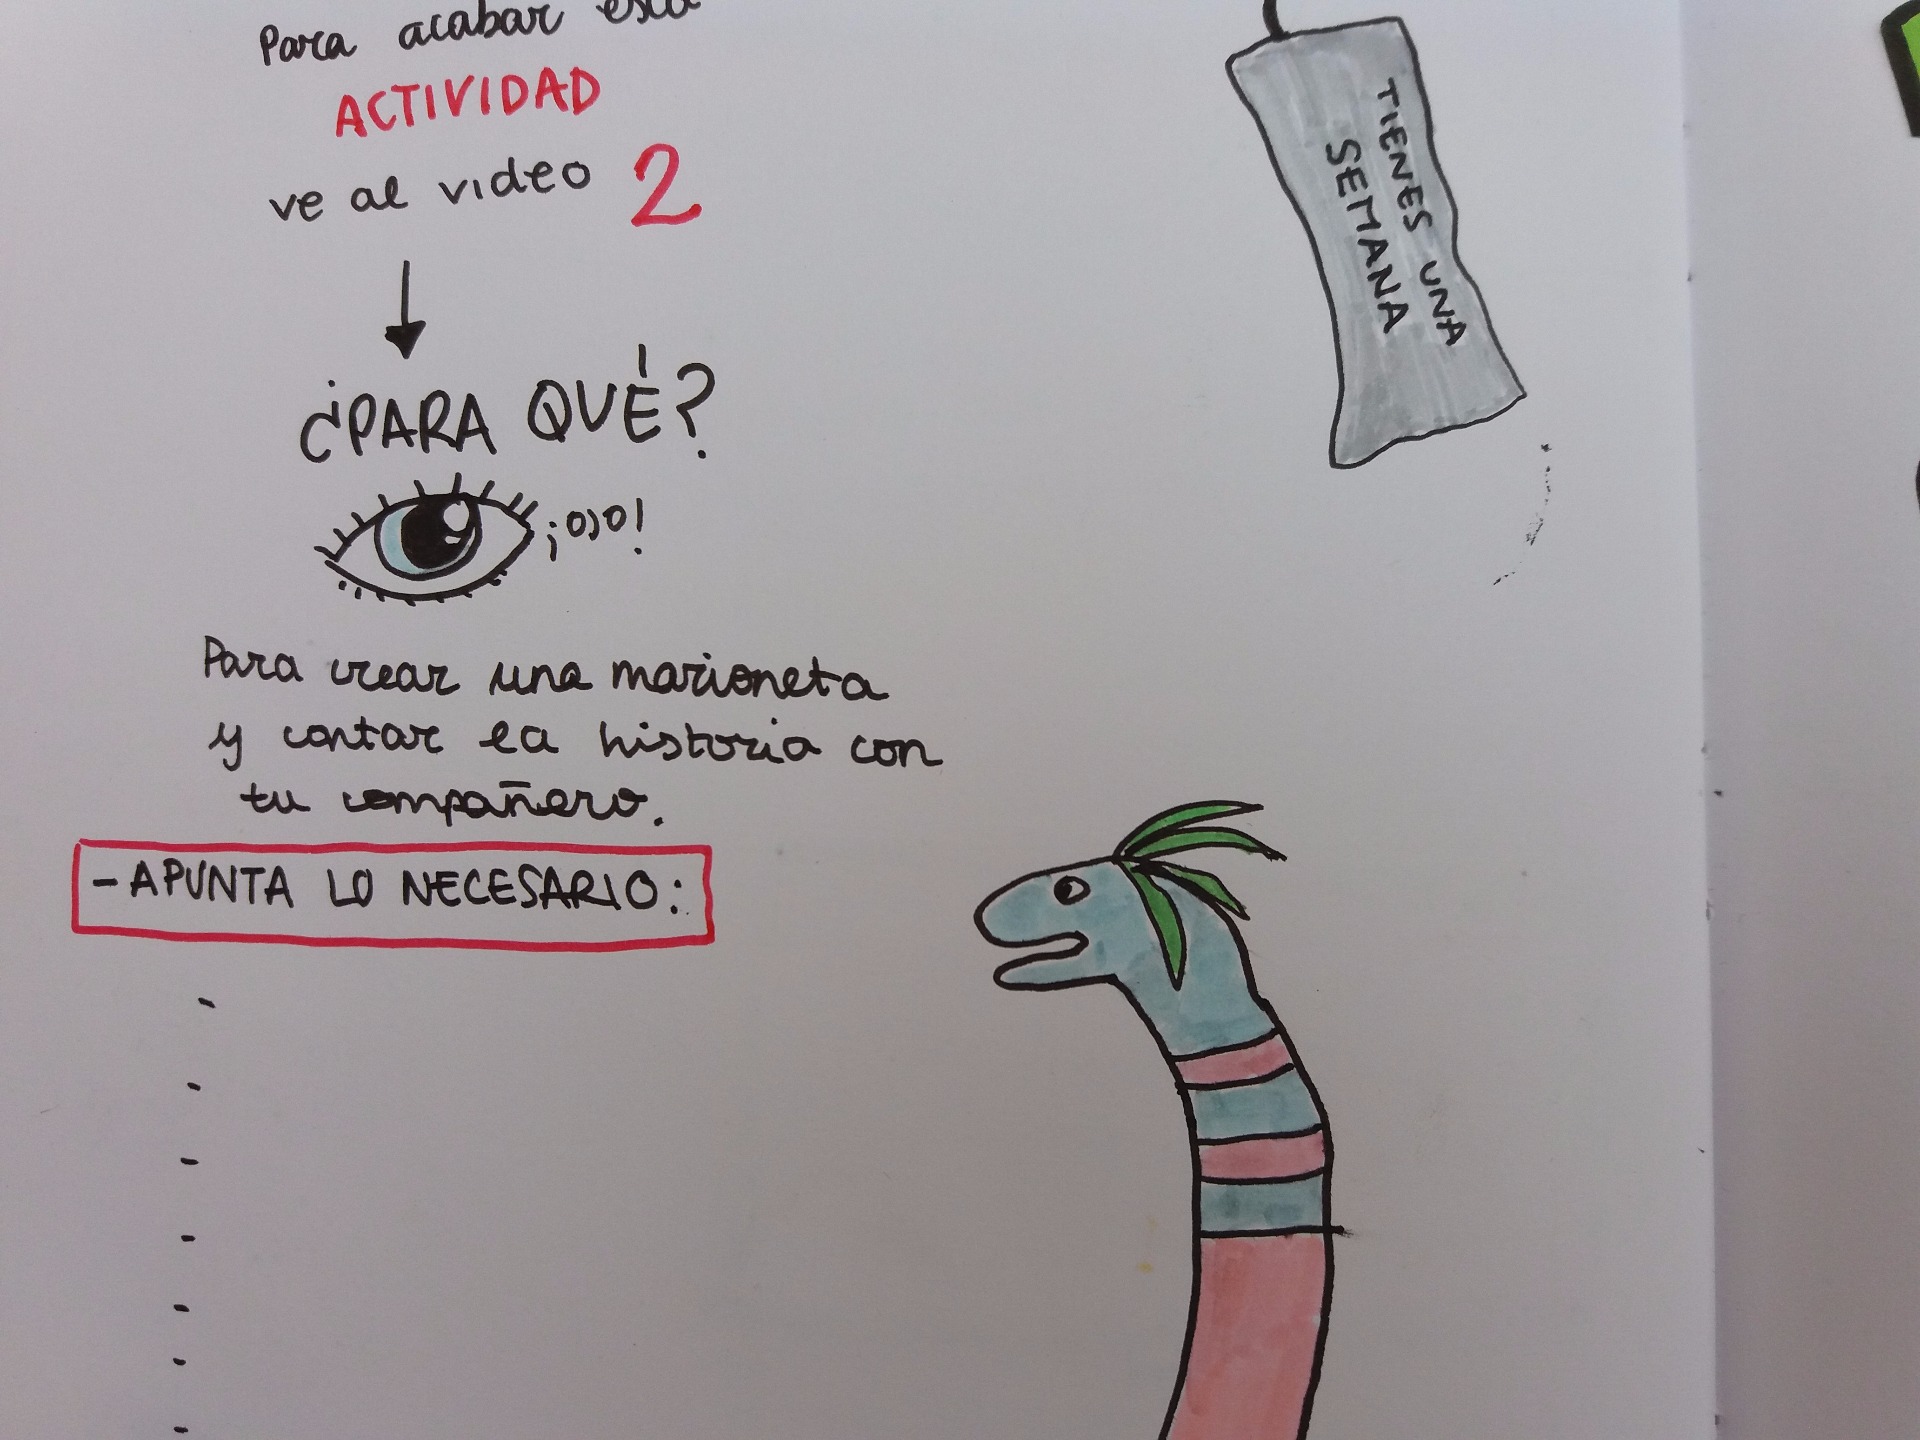 Para acabar esta
ACTIVIDAD
ve al video 2
¿PARA QUÉ?
¡OJO!
Para crear una marioneta
y contar la historia con
tu compañero.
- APUNTA LO NECESARIO:
-
-
-
-
-
-
-
TIENES UNA
SEMANA